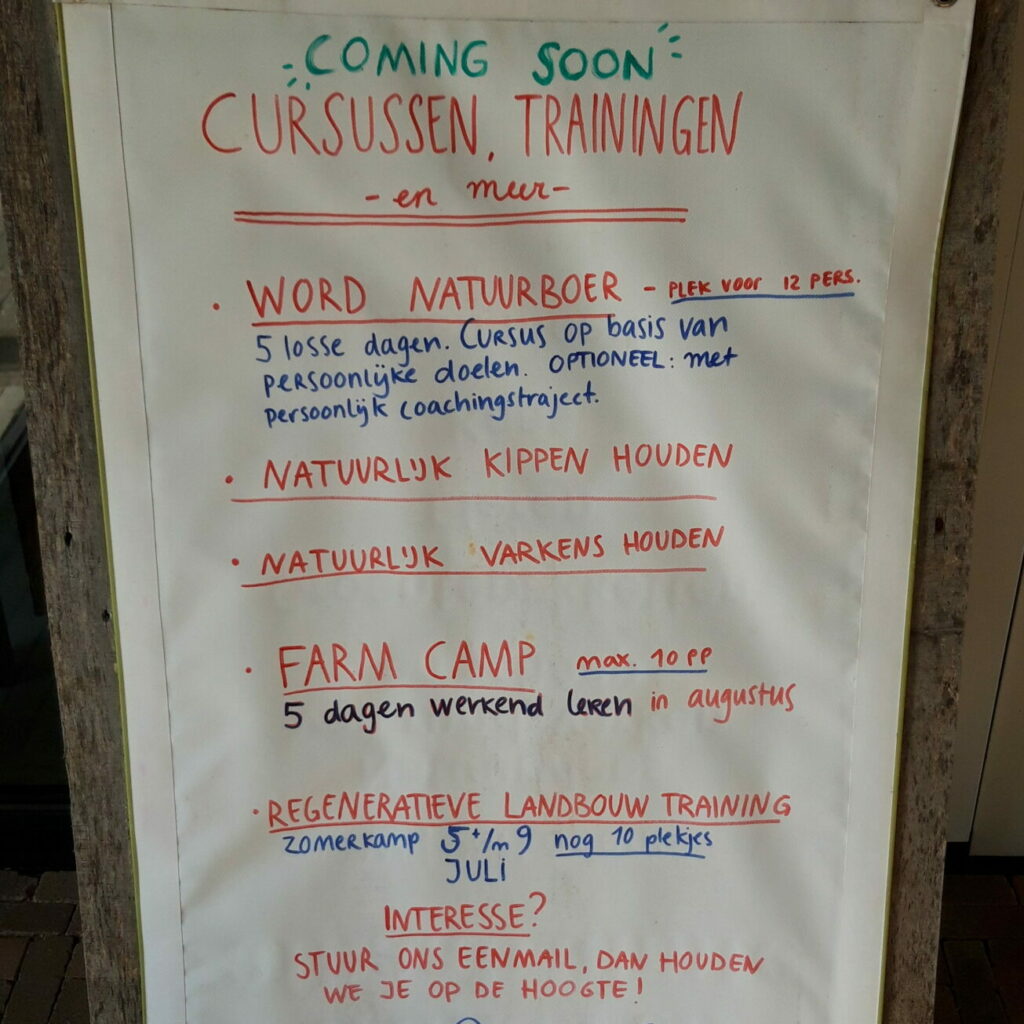 COMING SOON
CURSUSSEN, TRAININGEN
- en meer -
· WORD NATUURBOER - PLEK VOOR 12 PERS.
5 losse dagen. Cursus op basis van
persoonlijke doelen. OPTIONEEL: met
persoonlijk coachingstraject.
· NATUURLIJK KIPPEN HOUDEN
· NATUURLIJK VARKENS HOUDEN
· FARM CAMP max. 10 PP
5 dagen werkend leren in augustus
· REGENERATIEVE LANDBOUW TRAINING
zomerkamp 5 t/m 9 nog 10 plekjes
JULI
INTERESSE?
STUUR ONS EEN MAIL, DAN HOUDEN
WE JE OP DE HOOGTE!